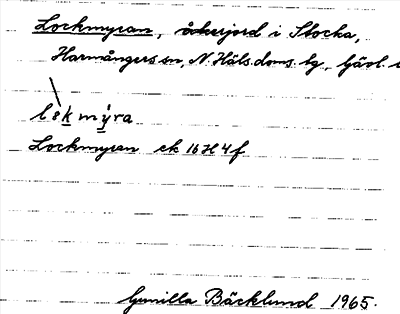 Lockmyran, åkerjord i Stocka,
Harmångers sn, N. Häls. doms. bg, Gävl.
Lockmyran ek 16H4f
Gunilla Bäcklund 1965.